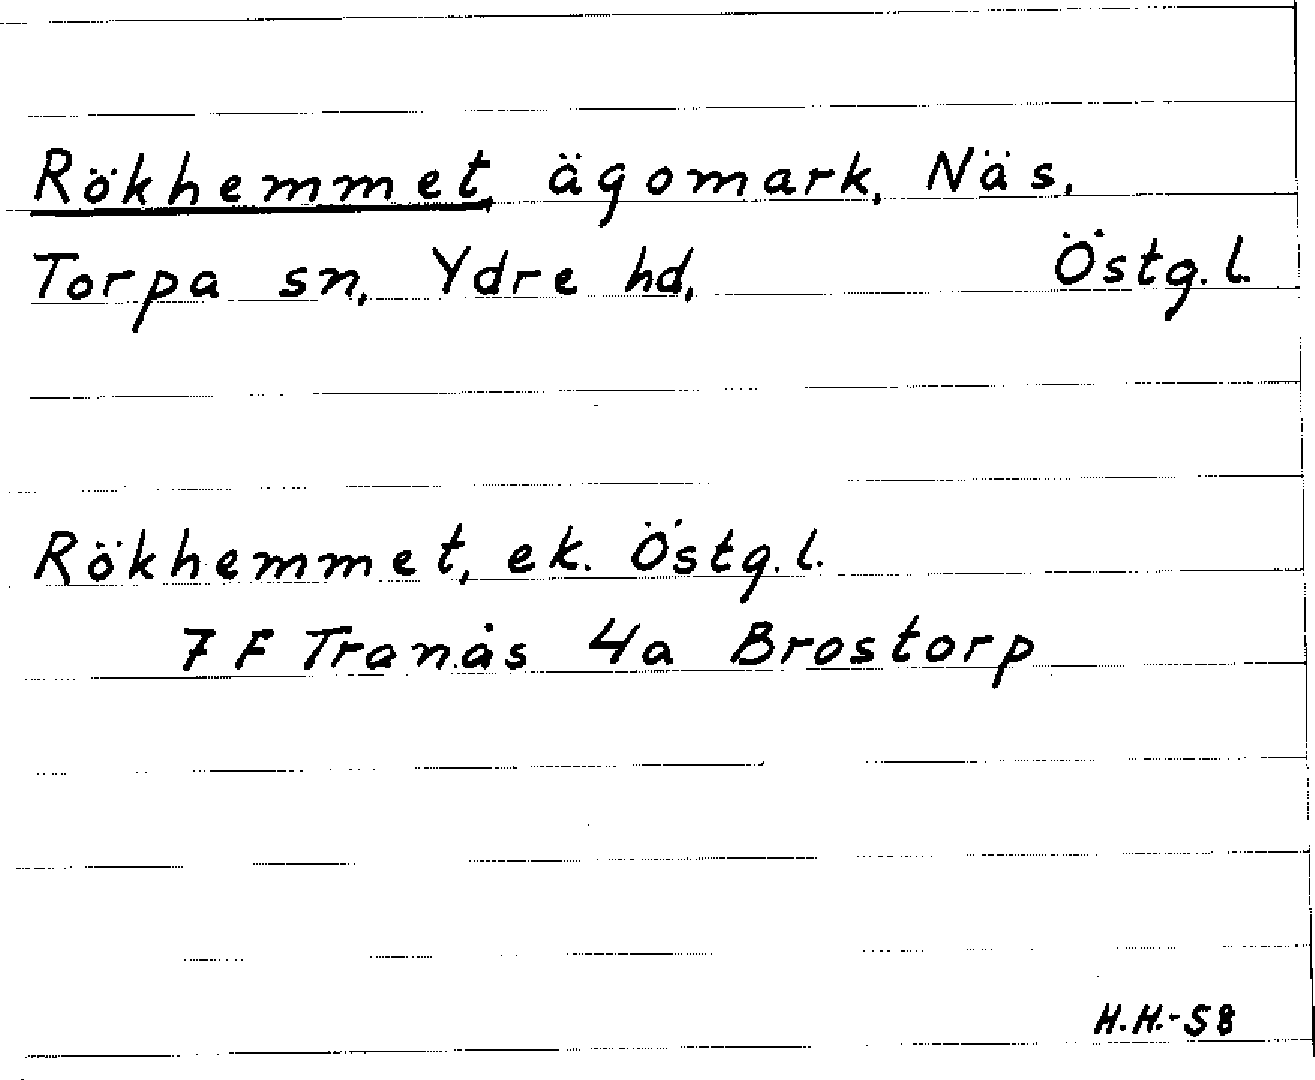 Rökhemmet, ägomark, Näs,
Torpa sn, Ydre hd, Östg. l.
Rökhemmet, ek. Östg. l.
7 F Tranås 4a Brostorp
H.H.-58